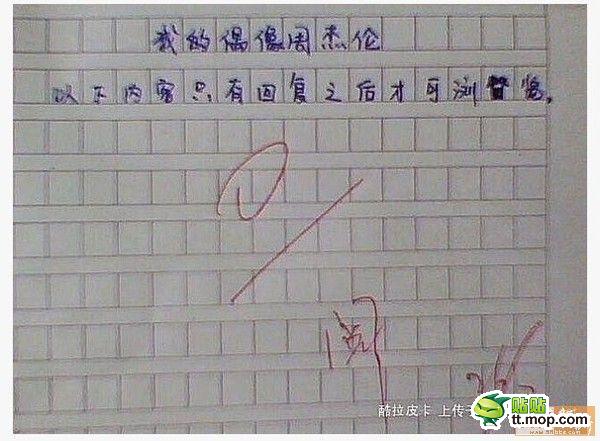 我的偶像周杰伦
以下内容只有回复之后才可浏览。
阅
酷拉皮卡 上传
贴贴
tt.mop.com